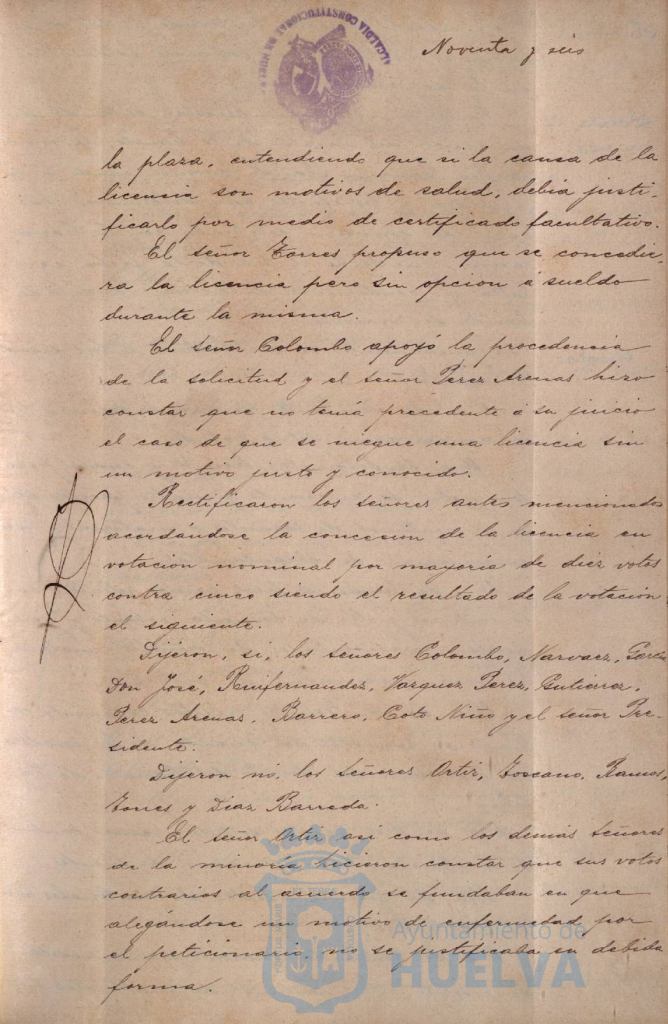 ALCALDIA CONSTITUCIONAL DE HUELVA
Noventa y seis
la plaza, entendiendo que si la causa de la
licencia son motivos de salud, debia justi-
ficarlo por medio de certificado facultativo.
El señor Torres propuso que se concedie-
ra la licencia pero sin opcion á sueldo
durante la misma.
El señor Colombo apoyó la procedencia
de la solicitud y el señor Perez Arenas hizo
constar que no tenia precedente á su juicio
el caso de que se niegue una licencia sin
un motivo justo y conocido.
Rectificaron los señores antes mencionados
acordándose la concesion de la licencia en
votacion nominal por mayoria de diez votos
contra cinco siendo el resultado de la votacion
el siguiente.
Dijeron, si, los señores Colombo, Narvaez, Garcia
Don José, Ruifernandez, Vazquez Perez, Gutierrez,
Perez Arenas, Barrero, Coto Niño y el señor Pre-
sidente.
Dijeron no, los señores Ortiz, Toscano, Ramos,
Torres y Diaz Barreda.
El señor Ortiz asi como los demás señores
de la minoria hicieron constar que sus votos
contrarios al acuerdo se fundaban en que
alegándose un motivo de enfermedad por
el peticionario, no se justificaba en debida
forma.
Ayuntamiento de
HUELVA